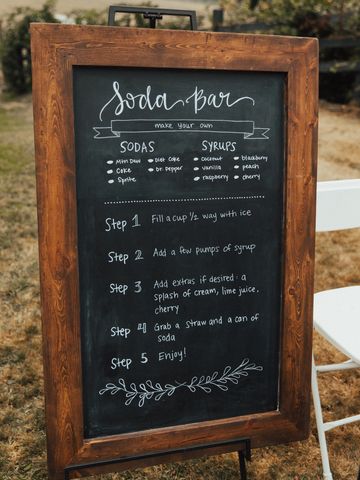 Soda Bar
make your own
SODAS
Mtn Dew
Coke
Sprite
Diet Coke
Dr. Pepper
SYRUPS
coconut
vanilla
raspberry
blackberry
peach
cherry
Step 1 Fill a cup 1/2 way with ice
Step 2 Add a few pumps of syrup
Step 3 Add extras if desired: a
splash of cream, lime juice,
cherry
Step 4 Grab a straw and a can of
soda
Step 5 Enjoy!